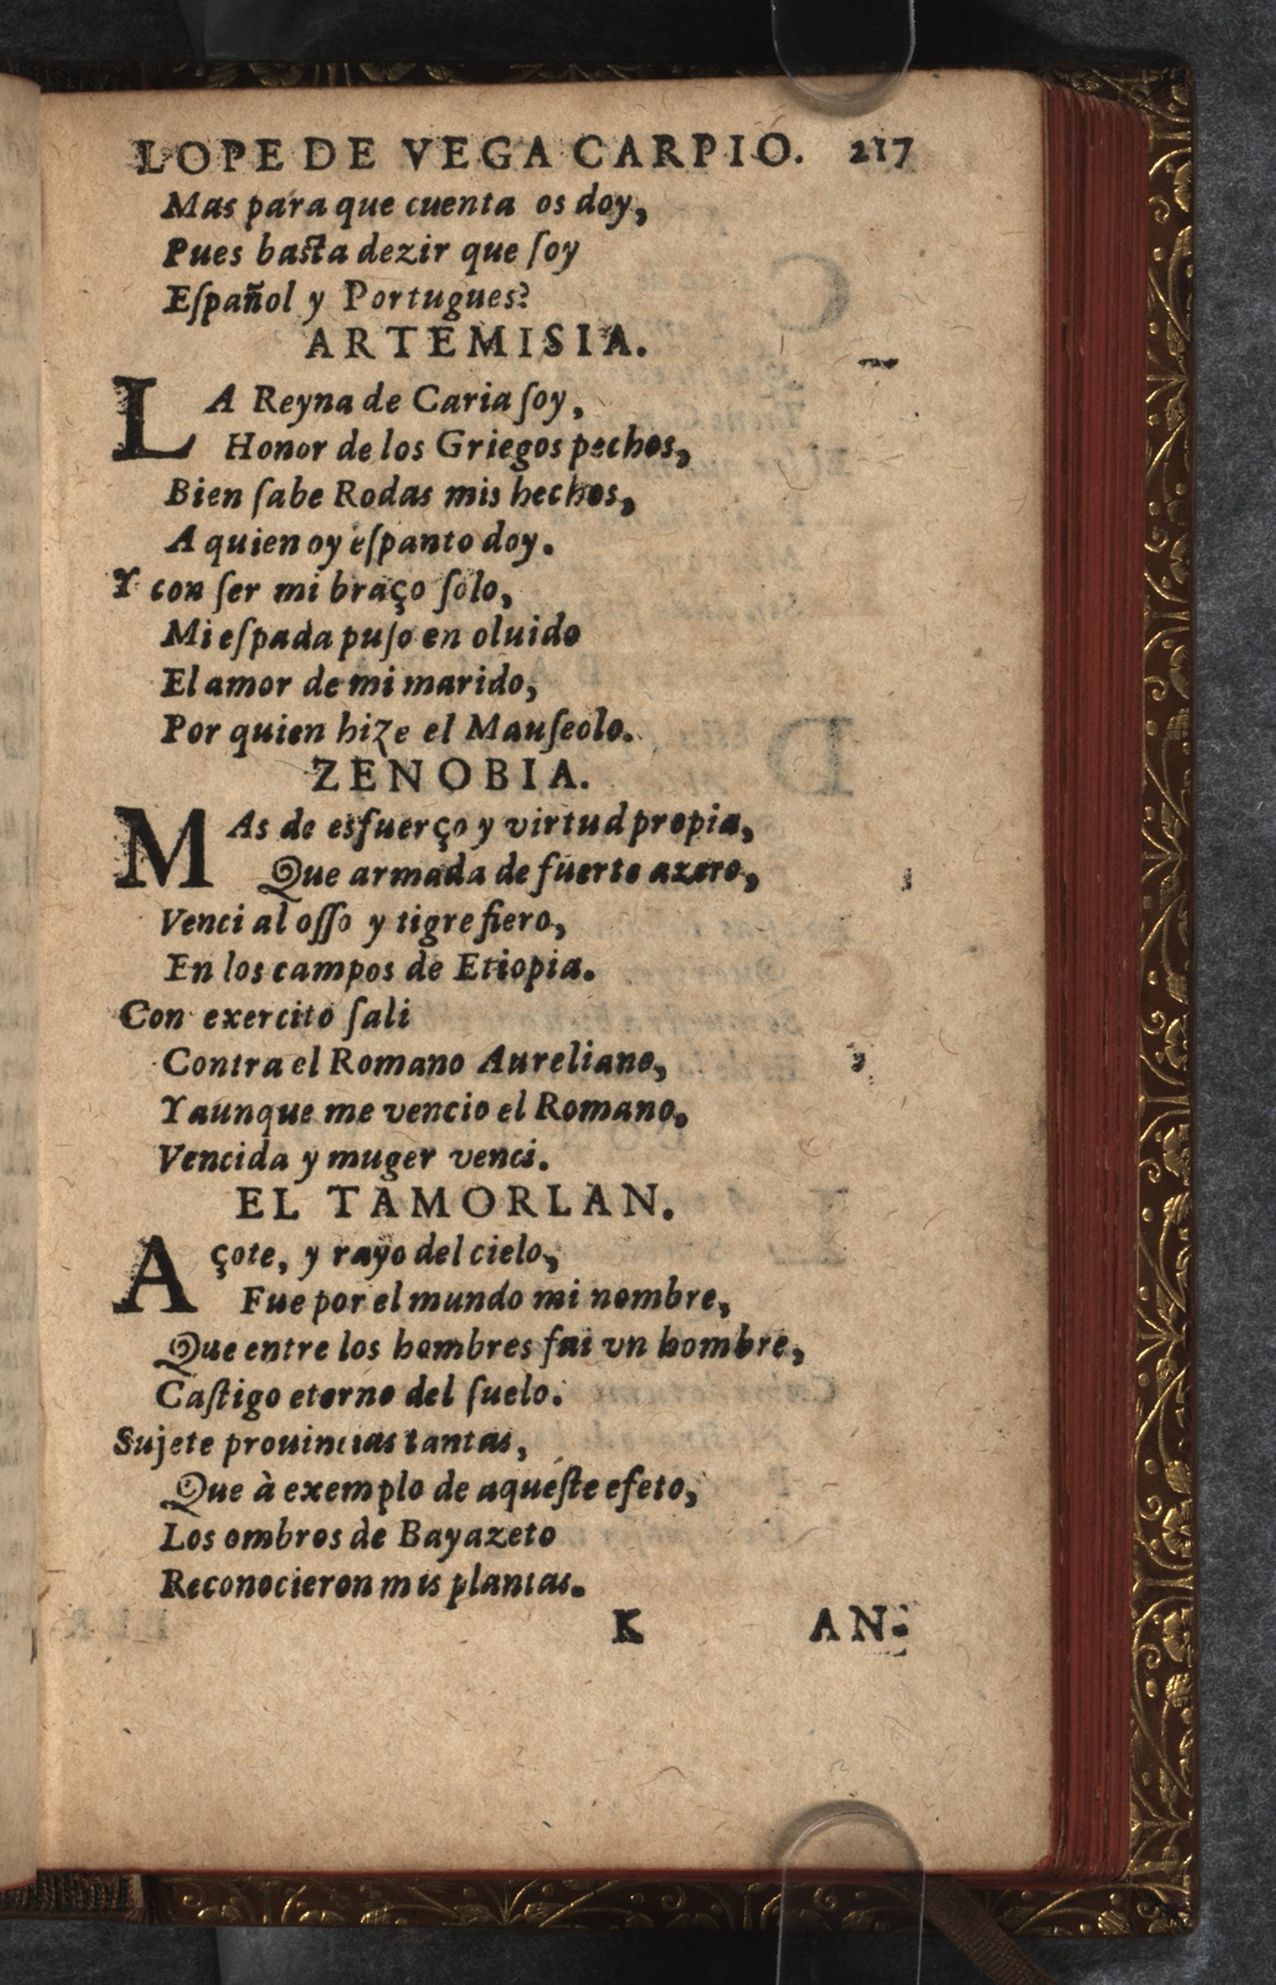 LOPE DE VEGA CARPIO. 217
Mas para que cuenta os doy,
Pues basta dezir que ſoy
Eſpañol y Portugues?
ARTEMISIA.
LA Reyna de Caria ſoy,
Honor de los Griegos pechos,
Bien ſabe Rodas mis hechos,
A quien oy eſpanto doy.
Y con ſer mi braço ſolo,
Mi eſpada puſo en oluido
El amor de mi marido,
Por quien hize el Mauſeolo.
ZENOBIA.
MAs de esfuerço y virtud propia,
Que armada de fuerte azero,
Venci al oſſo y tigre fiero,
En los campos de Etiopia.
Con exercito ſali
Contra el Romano Aureliano,
Y aunque me vencio el Romano,
Vencida y muger venci.
EL TAMORLAN.
Açote, y rayo del cielo,
Fue por el mundo mi nombre,
Que entre los hombres fui vn hombre,
Caſtigo eterno del ſuelo.
Sujete prouincias tantas,
Que à exemplo de aqueſte efeto,
Los ombros de Bayazeto
Reconocieron mis plantas.
K AN-